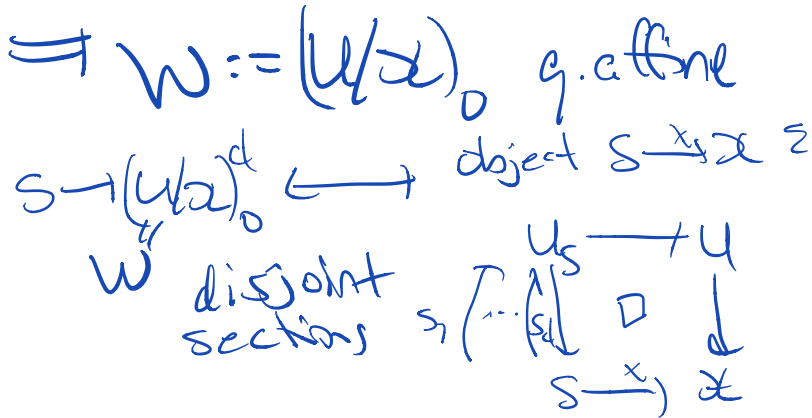 ⇒ W := (U/𝒳)₀ q.affine
S → (U/𝒳)₀ᵈ ⟷ object S →ˣ 𝒳 &
W
disjoint sections
U_S → U
s₁ ... s_d □
S →ˣ 𝒳